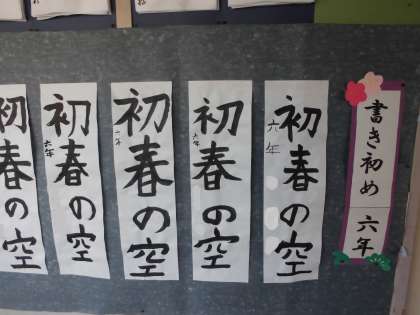 書き初め 六年
初春の空
六年
初春の空
六年
初春の空
六年
初春の空
六年
初春の空